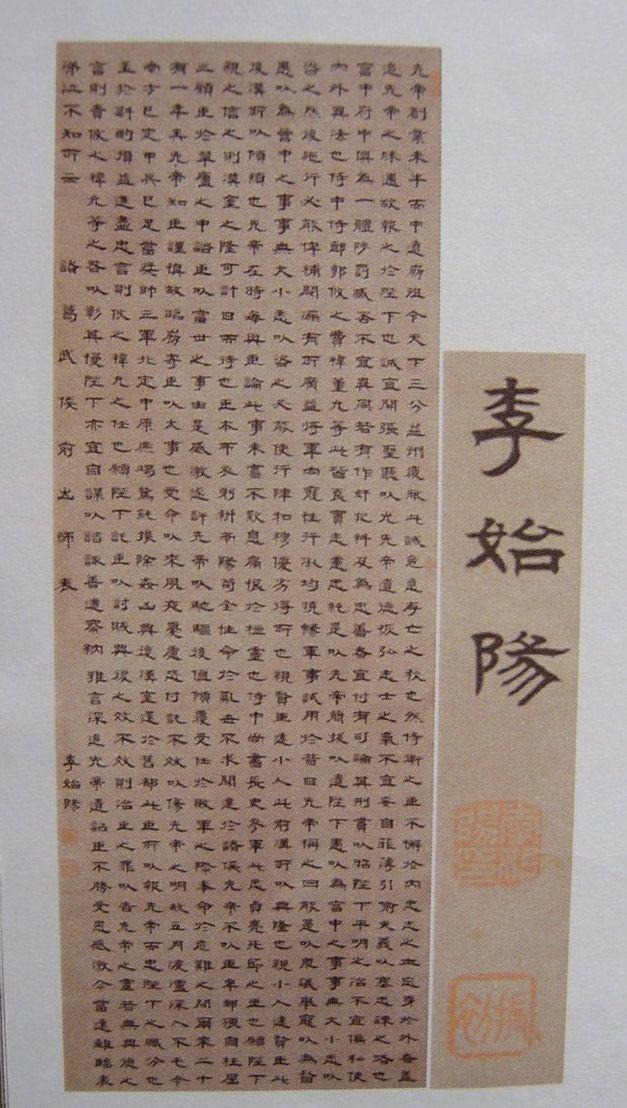 先帝創業未半而中道崩殂今天下三分益州疲敝此誠危急存亡之秋也然侍衛之臣不懈於內忠志之士忘身於外者蓋
追先帝之殊遇欲報之於陛下也誠宜開張聖聽以光先帝遺德恢弘志士之氣不宜妄自菲薄引喻失義以塞忠諫之路也
宮中府中俱為一體陟罰臧否不宜異同若有作奸犯科及為忠善者宜付有司論其刑賞以昭陛下平明之治不宜偏私使
內外異法也侍中侍郎郭攸之費禕董允等此皆良實志慮忠純是以先帝簡拔以遺陛下愚以為宮中之事事無大小悉以
咨之然後施行必能裨補闕漏有所廣益將軍向寵性行淑均曉暢軍事試用於昔日先帝稱之曰能是以眾議舉寵以為督
愚以為營中之事事無大小悉以咨之必能使行陣和穆優劣得所也親賢臣遠小人此前漢所以興隆也親小人遠賢臣此
後漢所以傾頹也先帝在時每與臣論此事未嘗不歎息痛恨於桓靈也侍中尚書長史參軍此悉貞亮死節之臣也願陛下
親之信之則漢室之隆可計日而待也臣本布衣躬耕南陽苟全性命於亂世不求聞達於諸侯先帝不以臣卑鄙猥自枉屈
三顧臣於草廬之中諮臣以當世之事由是感激遂許先帝以馳驅後值傾覆受任於敗軍之際奉命於危難之間爾來二十
有一年矣先帝知臣謹慎故臨崩寄臣以大事也受命以來夙夜憂慮恐付託不效以傷先帝之明故五月渡瀘深入不毛今
南方已定甲兵已足當獎帥三軍北定中原庶竭駑鈍攘除姦凶興復漢室還於舊都此臣所以報先帝而忠陛下之職分也
至於斟酌損益進盡忠言則攸之禕允之任也願陛下託臣以討賊興復之效不效則治臣之罪以告先帝之靈若無興德之
言則責攸之禕允等之咎以彰其慢陛下亦宜自謀以諮諏善道察納雅言深追先帝遺詔臣不勝受恩感激今當遠離臨表
涕泣不知所云 諸葛武侯前出師表 李始陽
李始陽